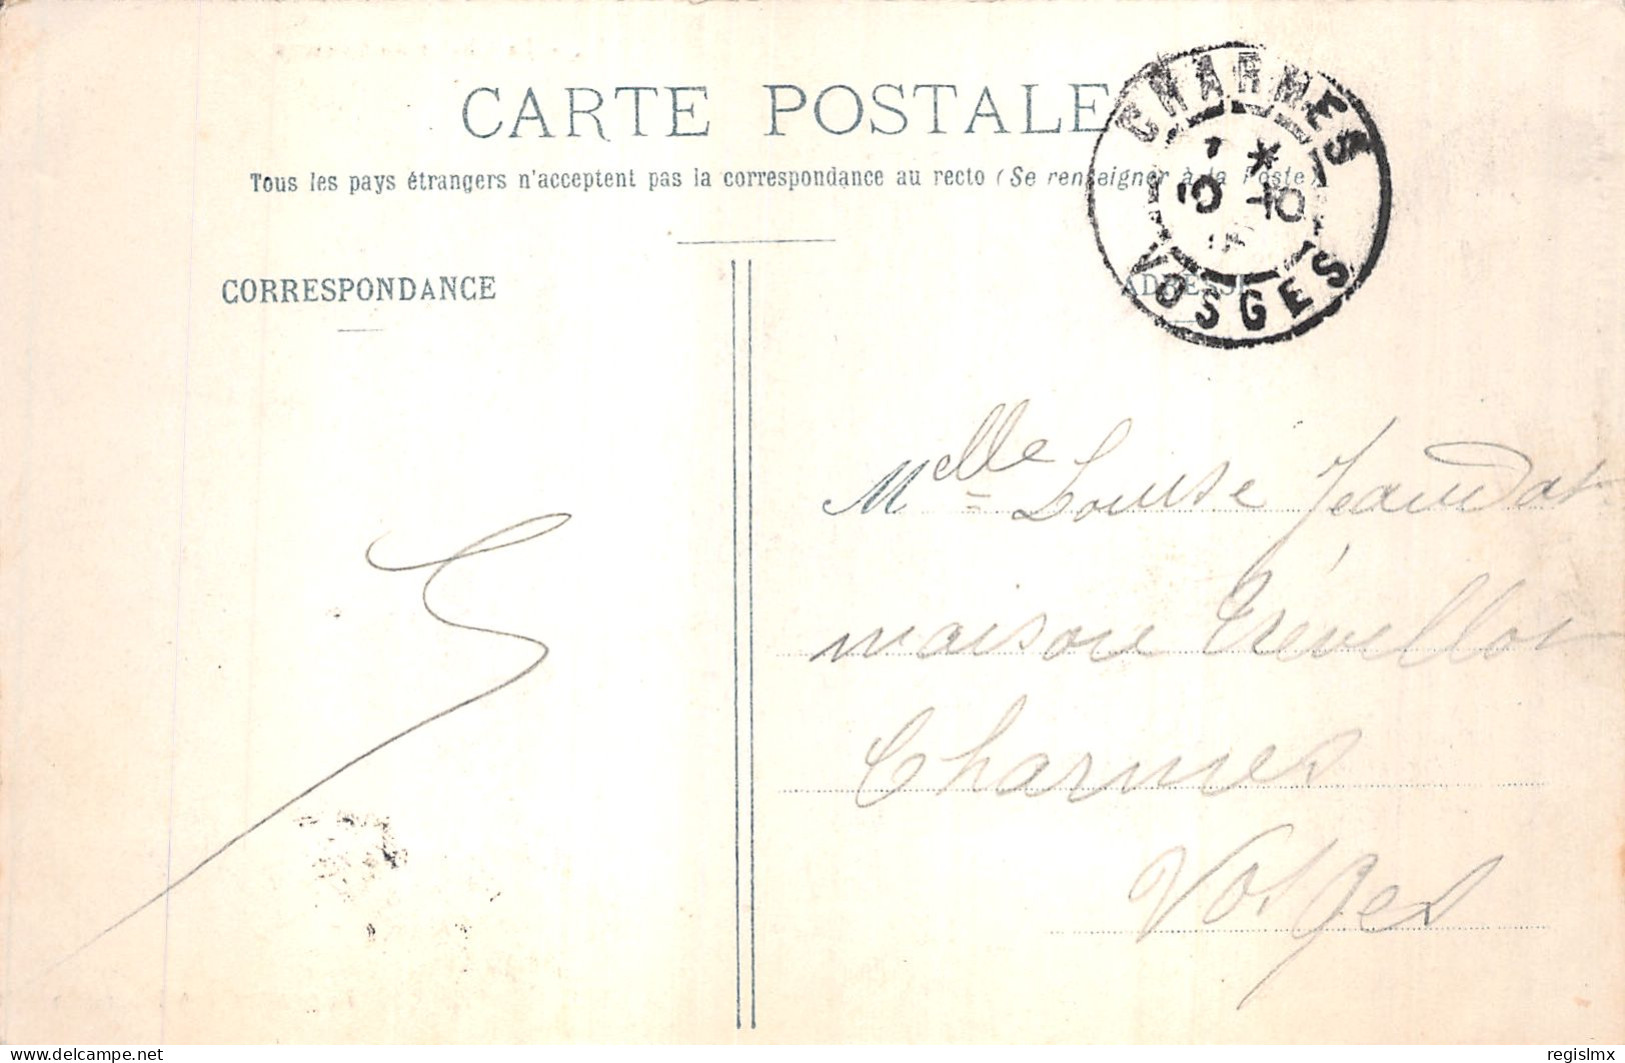 CARTE POSTALE
Tous les pays étrangers n'acceptent pas la correspondance au recto (Se renseigner à la Poste)
CHARMES
VOSGES
CORRESPONDANCE
ADRESSE
Melle Louise Jeaudat
maison Trévillot
Charmes
Vosges
delcampe.net
regislmx